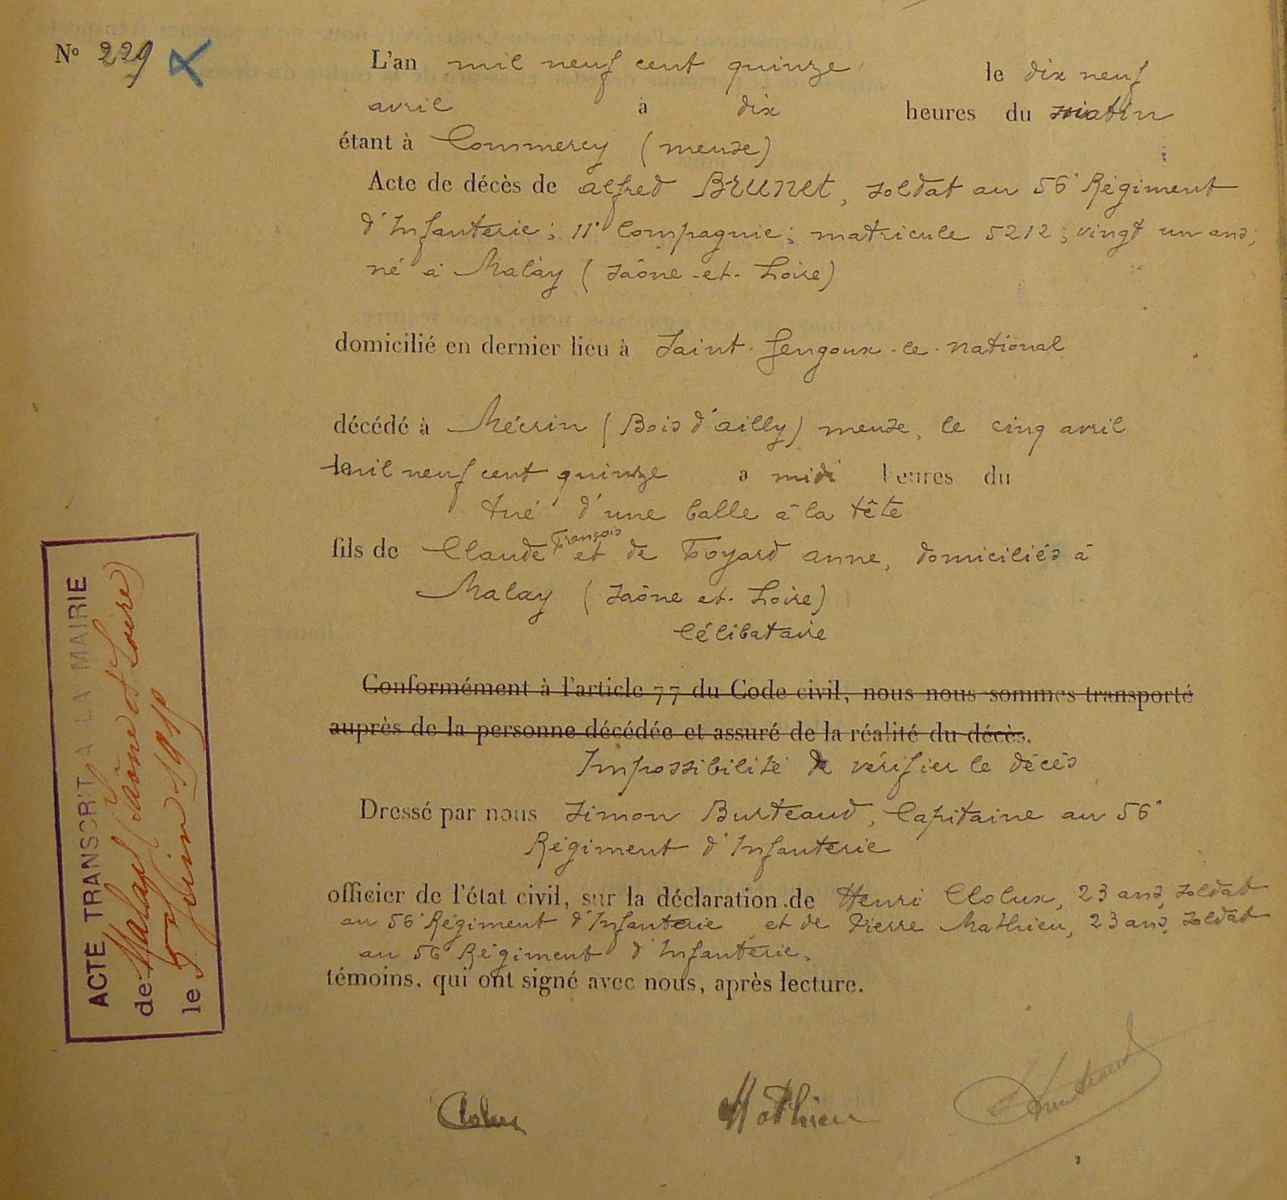 N° 229
L'an mil neuf cent quinze le dix neuf
avril à dix heures du matin
étant à Commercy (meuse)
Acte de décès de alfred Brunet, soldat au 56e Régiment
d'Infanterie; 11e Compagnie; matricule 5212; vingt un ans;
né à Malay (Saône-et-Loire)
domicilié en dernier lieu à Saint-Gengoux-le-national
décédé à Mécrin (Bois d'ailly) meuse, le cinq avril
mil neuf cent quinze à midi heures du
tué d'une balle à la tête
fils de Claude François et de Foyard anne, domiciliés à
Malay (Saône et-Loire)
célibataire
Conformément à l'article 77 du Code civil, nous nous sommes transporté
auprès de la personne décédée et assuré de la réalité du décès.
Impossibilité de vérifier le décès
Dressé par nous Simon Burteaud, Capitaine au 56e
Régiment d'Infanterie
officier de l'état civil, sur la déclaration de Henri Clolux, 23 ans, soldat
au 56e Régiment d'Infanterie et de Pierre Mathieu, 23 ans, soldat
au 56e Régiment d'Infanterie,
témoins, qui ont signé avec nous, après lecture.
Mathieu
ACTE TRANSCRIT A LA MAIRIE
de Malay (Saône et Loire)
le 5 Juin